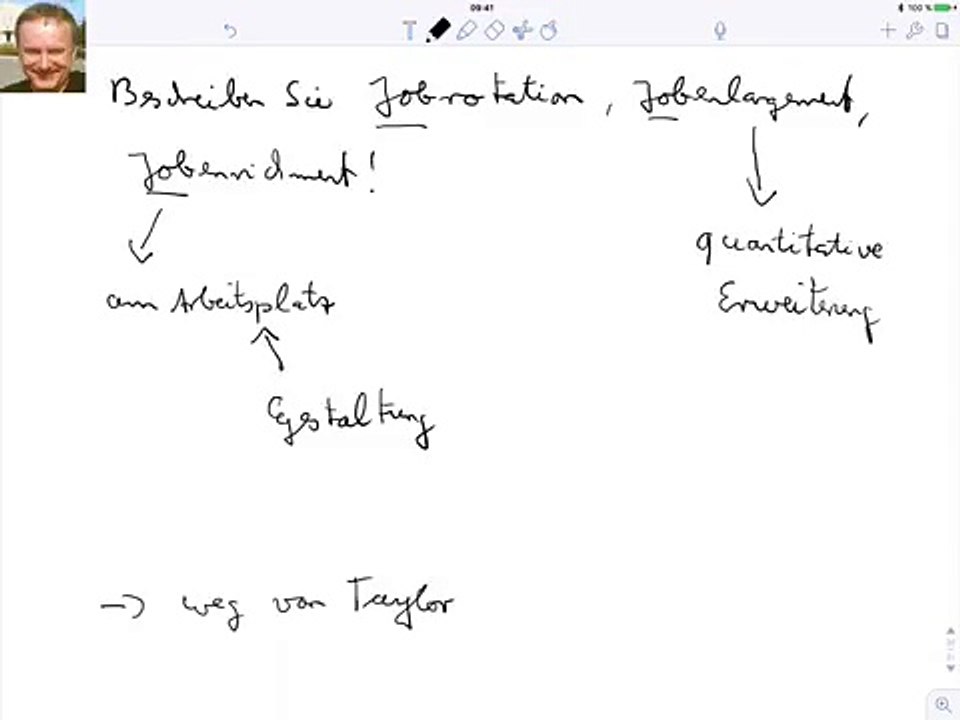 09:41
100 %
T
Beschreiben Sie Jobrotation, Jobenlargement,
Jobenrichment!
quantitative
Erweiterung
am Arbeitsplatz
Gestaltung
→ weg von Taylor